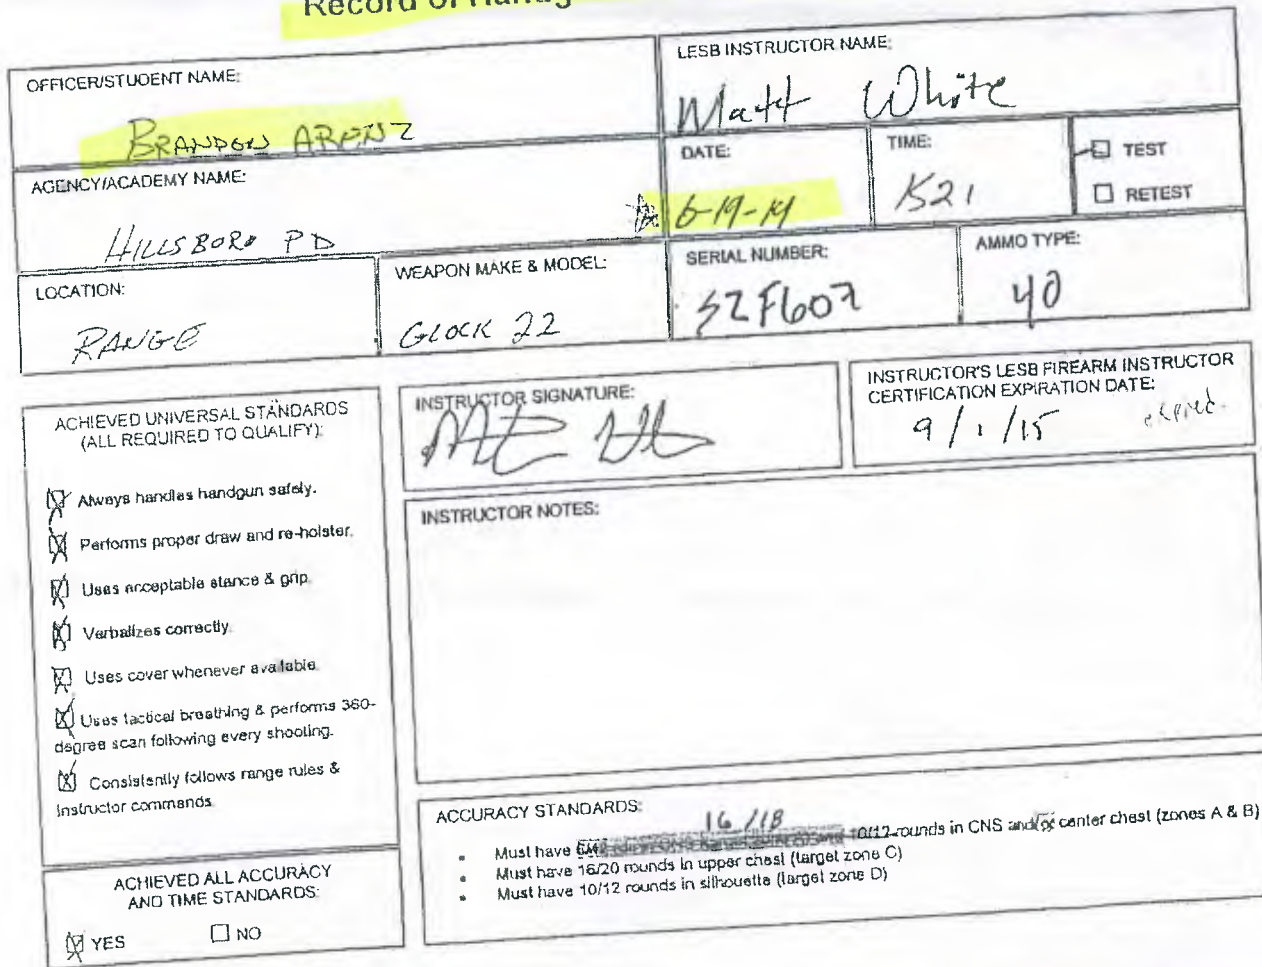 Record of Handg
OFFICER/STUDENT NAME:
BRANDON ARENZ
LESB INSTRUCTOR NAME:
Matt White
AGENCY/ACADEMY NAME:
HILLSBORO PD
DATE:
6-19-14
TIME:
1521
TEST
RETEST
LOCATION:
RANGE
WEAPON MAKE & MODEL:
GLOCK 22
SERIAL NUMBER:
AMMO TYPE:
40
ACHIEVED UNIVERSAL STANDARDS
(ALL REQUIRED TO QUALIFY):
Always handles handgun safely.
Performs proper draw and re-holster.
Uses acceptable stance & grip.
Verbalizes correctly.
Uses cover whenever available.
Uses tactical breathing & performs 360-
degree scan following every shooting.
Consistently follows range rules &
Instructor commands.
ACHIEVED ALL ACCURACY
AND TIME STANDARDS:
YES NO
INSTRUCTOR SIGNATURE:
INSTRUCTOR'S LESB FIREARM INSTRUCTOR
CERTIFICATION EXPIRATION DATE:
9/1/15 expired.
INSTRUCTOR NOTES:
ACCURACY STANDARDS:
16/18
• Must have 10/12 rounds in CNS and/or center chest (zones A & B)
• Must have 16/20 rounds in upper chest (target zone C)
• Must have 10/12 rounds in silhouette (target zone D)